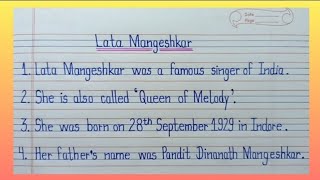 Lata Mangeshkar
1. Lata Mangeshkar was a famous singer of India.
2. She is also called 'Queen of Melody'.
3. She was born on 28th September 1929 in Indore.
4. Her father's name was Pandit Dinanath Mangeshkar.